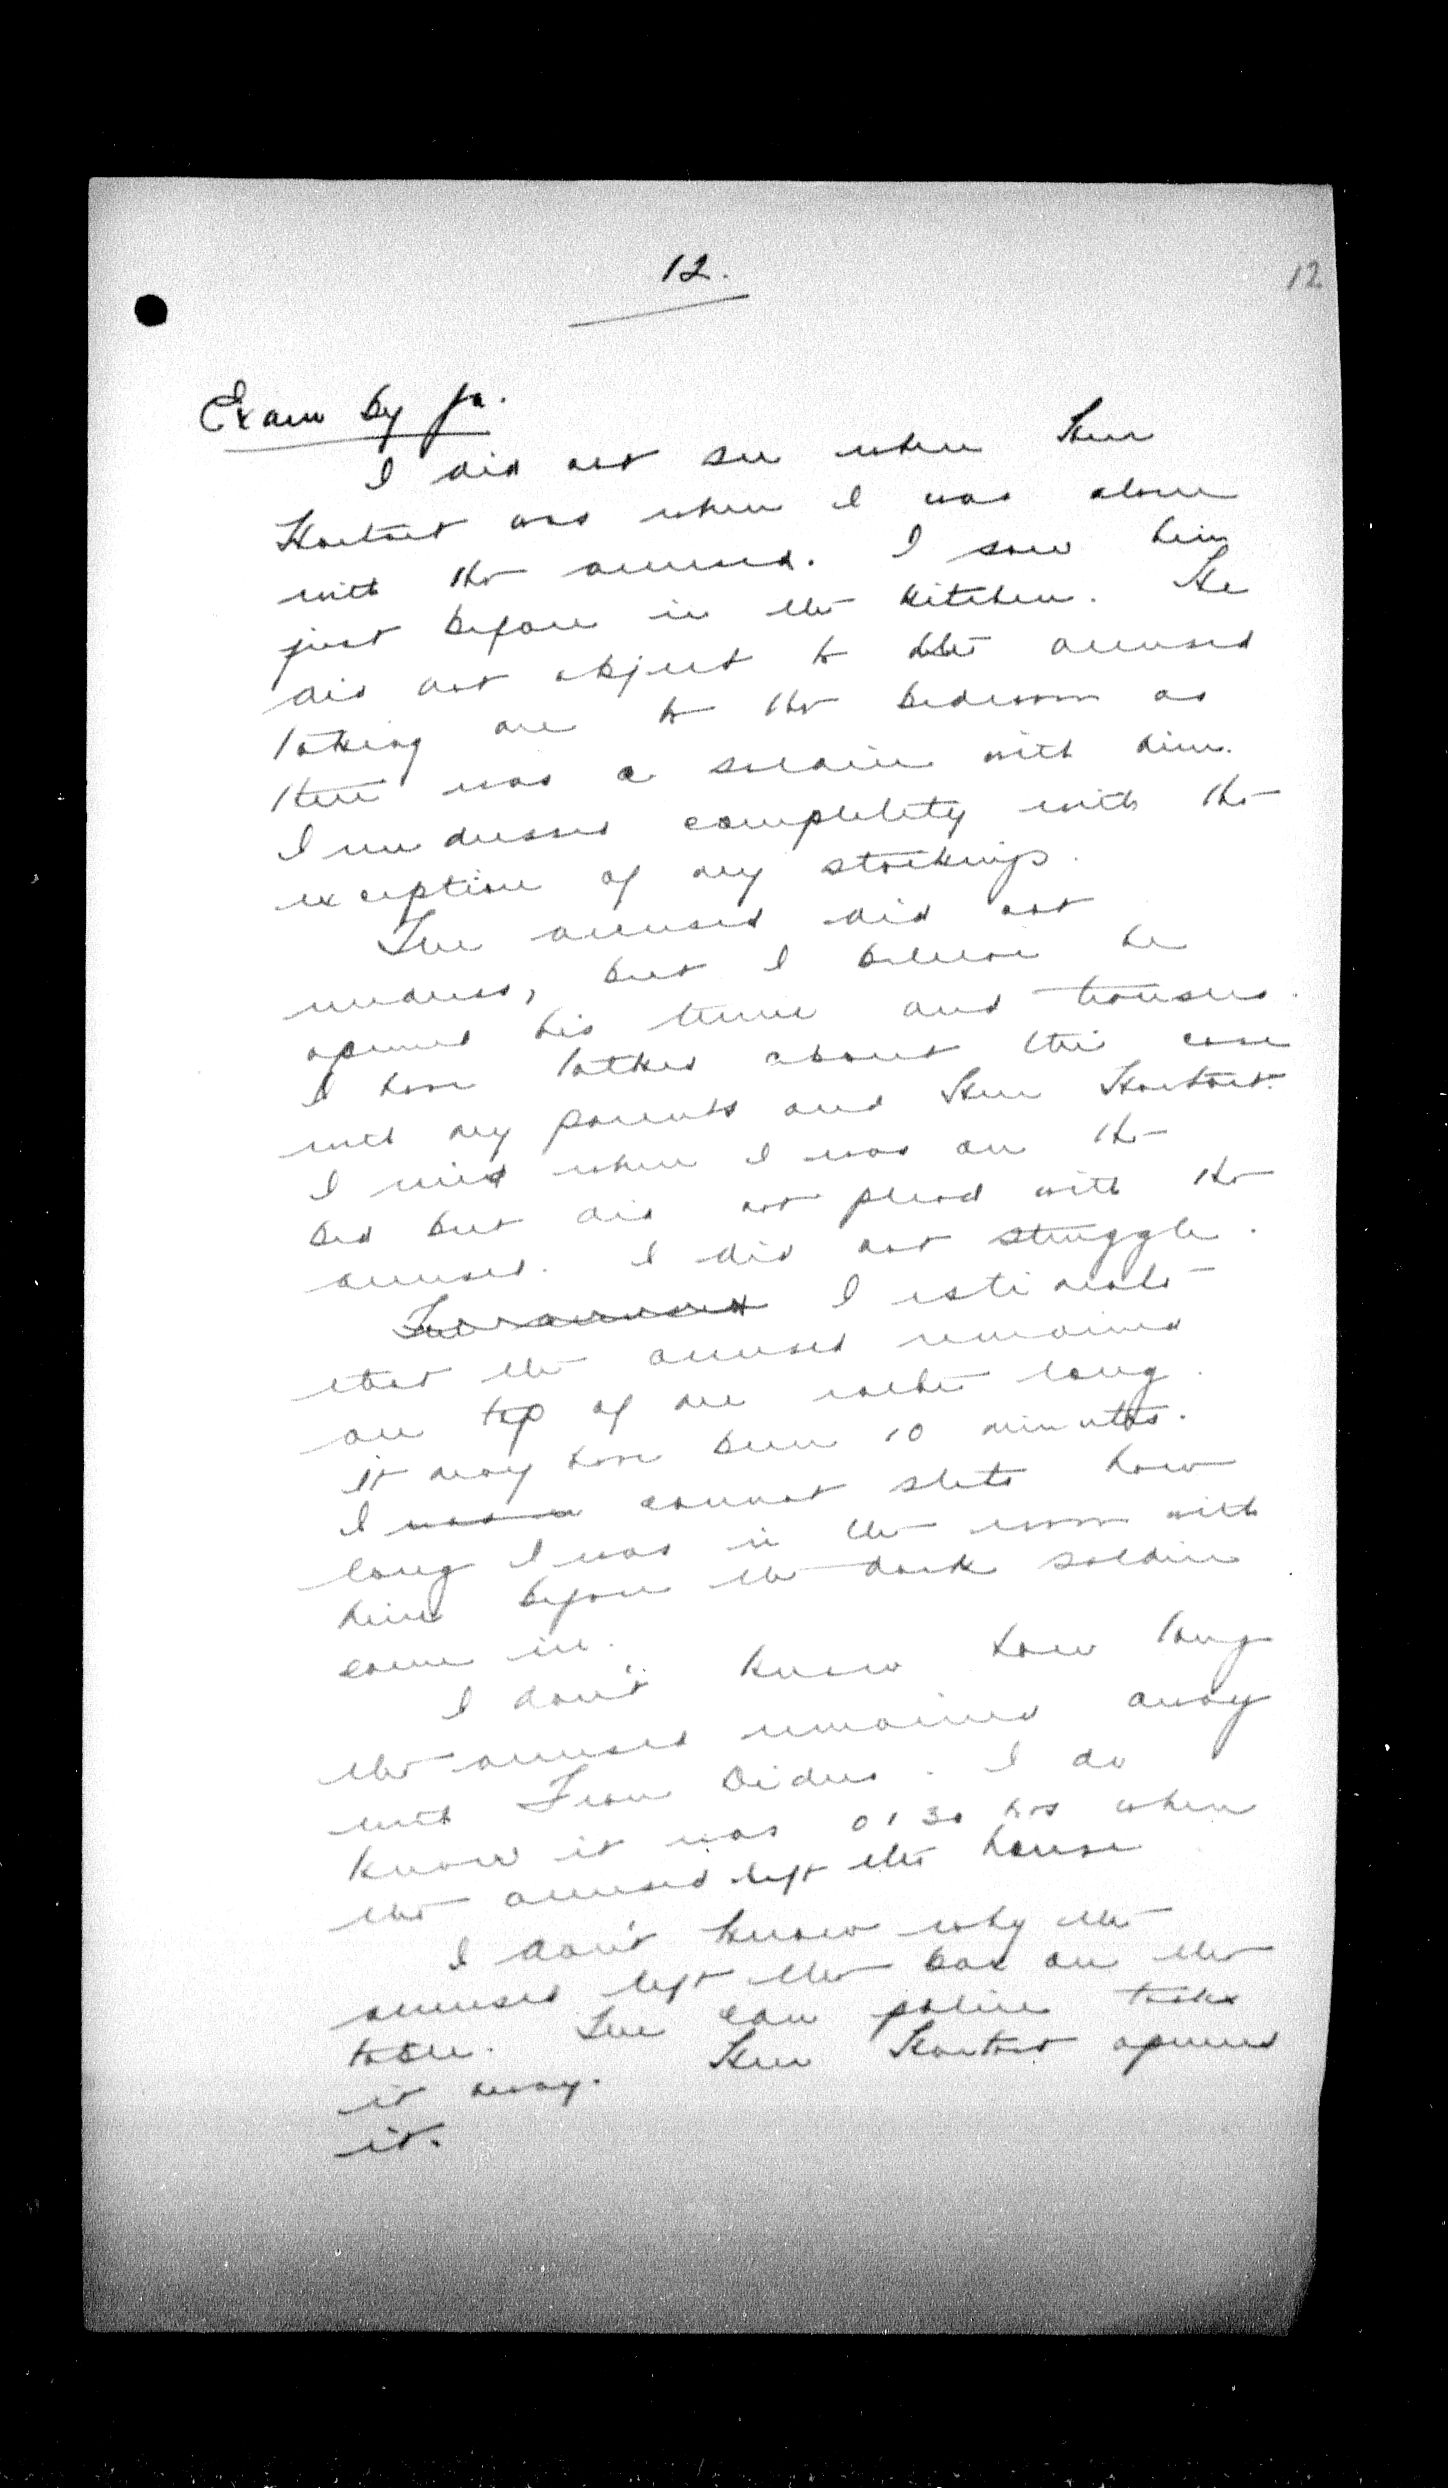 12.
12
Exam by Ja.
I did not see where Herr
Hartart was when I was alone
with the accused. I saw him
just before in the kitchen. He
did not object to the accused
taking me to the bedroom as
there was a soldier with him.
I undressed completely with the
exception of my stockings.
The accused did not
undress, but I believe he
opened his tunic and trousers.
I have talked about this case
with my parents and Herr Hartart.
I cried when I was on the
bed but did not plead with the
accused. I did not struggle.
The accused I estimate
that the accused remained
on top of me rather long.
it may have been 10 minutes.
I was cannot state how
long I was in the room with
him before the dark soldier
came in.
I don't know how long
the accused remained away
with Frau Diders. I do
know it was 0130 hrs when
the accused left the house
I don't know why the
accused left the box on the
table. The Can police took
it away. Herr Hartart opened
it.